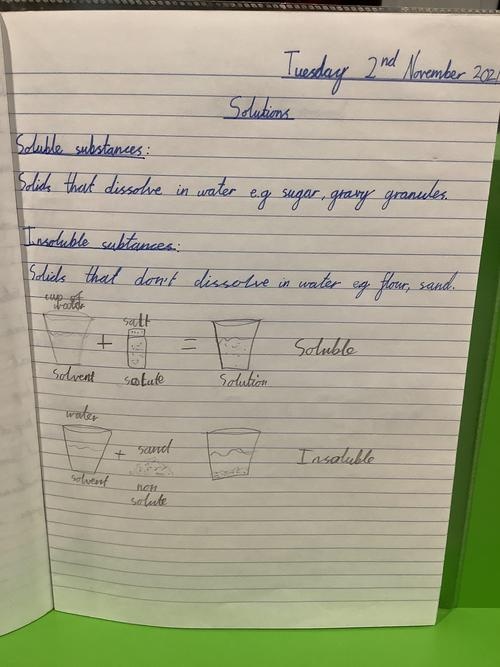 Tuesday 2nd November 2021
Solutions
Soluble substances:
Solids that dissolve in water e.g sugar, gravy granules.
Insoluble subtances:
Solids that don't dissolve in water eg flour, sand.
cup of water salt
+ = Soluble
solvent solute Solution
water
+ sand Insoluble
solvent non solute